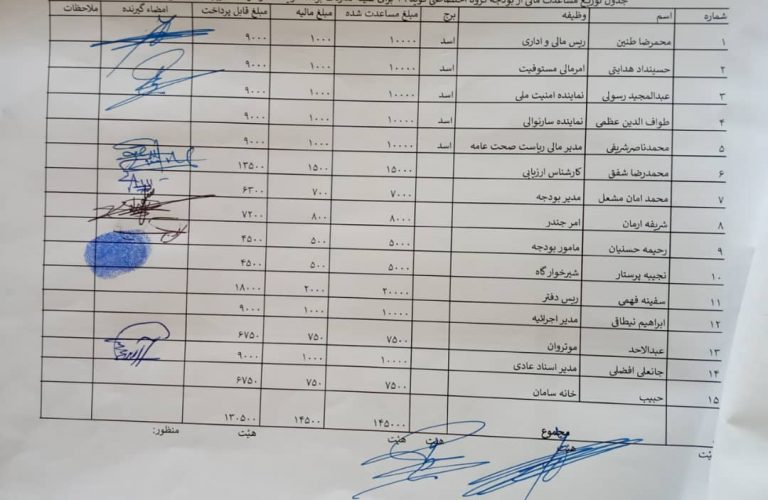 جدول توزیع مساعدت مالی از بودجه گروه اختصاصی کوید
شماره اسم وظیفه برج مبلغ مساعدت شده مبلغ مالیه مبلغ قابل پرداخت امضاء گیرنده ملاحظات
۱ محمدرضا طنین ریس مالی و اداری اسد ۱۰۰۰۰ ۱۰۰۰ ۹۰۰۰
۲ حسینداد هدایتی امرمالی مستوفیت اسد ۱۰۰۰۰ ۱۰۰۰ ۹۰۰۰
۳ عبدالمجید رسولی نماینده امنیت ملی اسد ۱۰۰۰۰ ۱۰۰۰ ۹۰۰۰
۴ طواف الدین عظمی نماینده سارنوالی اسد ۱۰۰۰۰ ۱۰۰۰ ۹۰۰۰
۵ محمدناصرشریفی مدیر مالی ریاست صحت عامه اسد ۱۰۰۰۰ ۱۰۰۰ ۹۰۰۰
۶ محمدرضا شفق کارشناس ارزیابی ۱۵۰۰۰ ۱۵۰۰ ۱۳۵۰۰
۷ محمد امان مشعل مدیر بودجه ۷۰۰۰ ۷۰۰ ۶۳۰۰
۸ شریفه ارمان امر جندر ۸۰۰۰ ۸۰۰ ۷۲۰۰
۹ رحیمه حسنیان مامور بودجه ۵۰۰۰ ۵۰۰ ۴۵۰۰
۱۰ نجیبه پرستار شیرخوار گاه ۵۰۰۰ ۵۰۰ ۴۵۰۰
۱۱ سفینه فهمی ریس دفتر ۲۰۰۰۰ ۲۰۰۰ ۱۸۰۰۰
۱۲ ابراهیم نیطاقی مدیر اجرائیه ۱۰۰۰۰ ۱۰۰۰ ۹۰۰۰
۱۳ عبدالاحد موتروان ۷۵۰۰ ۷۵۰ ۶۷۵۰
۱۴ جانعلی افضلی مدیر اسناد عادی ۱۰۰۰۰ ۱۰۰۰ ۹۰۰۰
۱۵ حبیب خانه سامان ۷۵۰۰ ۷۵۰ ۶۷۵۰
مجموع ۱۴۵۰۰۰ ۱۴۵۰۰ ۱۳۰۵۰۰
هئیت هئیت هئیت هئیت هئیت منظور: